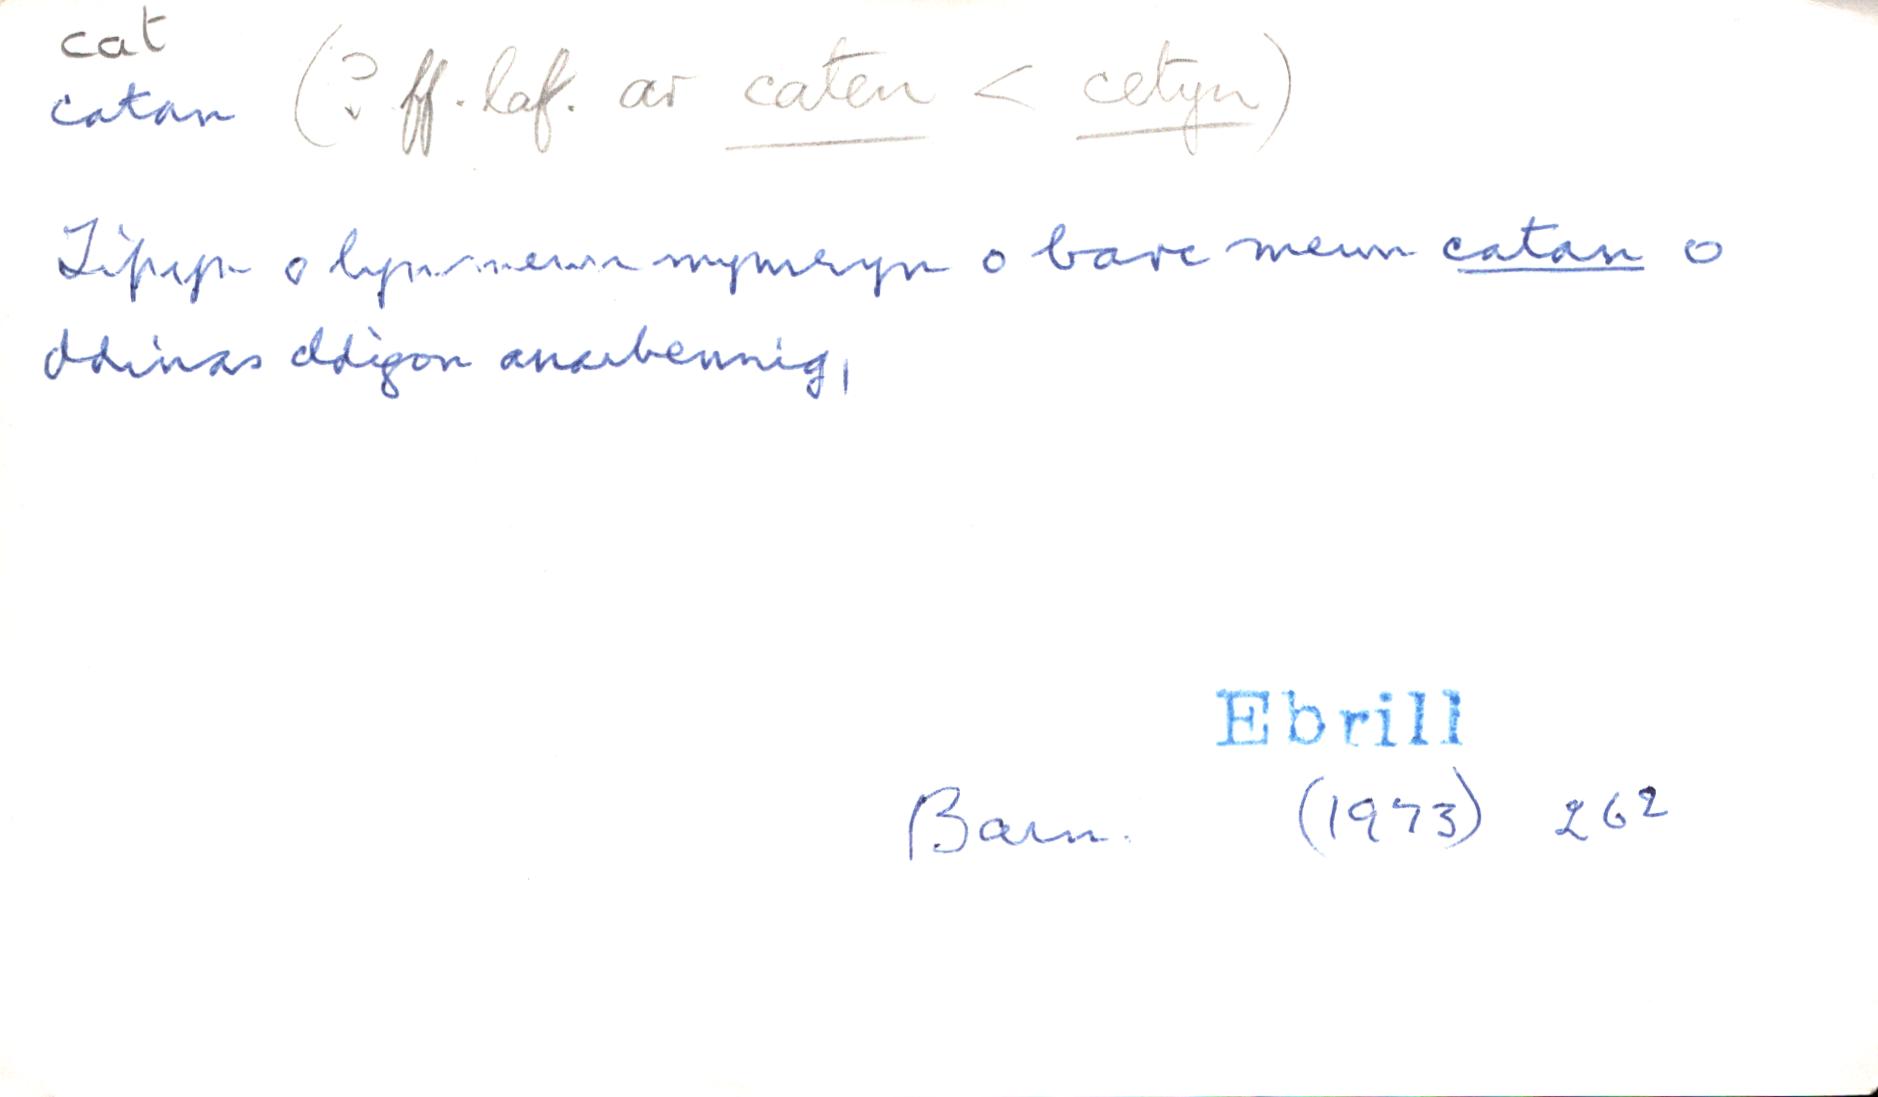 cat
catan (? ff. laf. ar caten < cetyn)
Tipyn o lyn mewn mymryn o barc mewn catan o
ddinas ddigon anarbennig,
Ebrill
Barn. (1973) 262